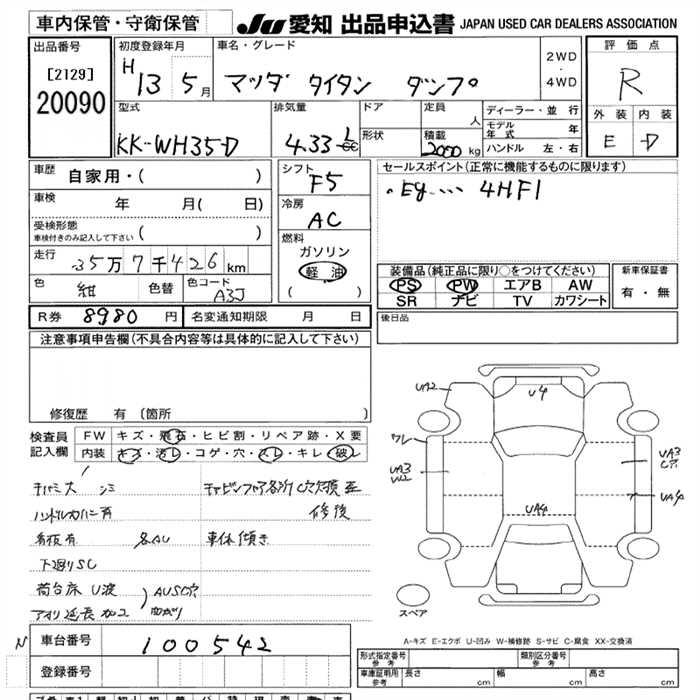 車内保管・守衛保管
JU 愛知 出品申込書 JAPAN USED CAR DEALERS ASSOCIATION
出品番号
[2129]
20090
初度登録年月
H 13 5月
車名・グレード
マツダ タイタン ダンプ
2WD
・
4WD
評価点
R
型式
KK-WH35D
排気量
4.33 L
cc
ドア
形状
定員
人
積載
2000 kg
ディーラー・並行
モデル
年式 年
ハンドル 左・右
外装 内装
E D
車歴 自家用・( )
車検 年 月( 日)
受検形態
車検付きのみ記入して下さい ( )
走行
35万7千426km
色 紺 色替 色コード A3J
シフト
F5
冷房
AC
燃料
ガソリン
軽油
( )
セールスポイント(正常に機能するものに限ります)
Eg 4HF1
装備品(純正品に限り○をつけてください)
PS PW エアB AW
SR ナビ TV カワシート
新車保証書
有・無
R券 8980円 名変通知期限 月 日
後日品
注意事項申告欄(不具合内容等は具体的に記入して下さい)
修復歴 有(箇所
検査員
記入欄
FW キズ・飛石・ヒビ割・リペア跡・X要
内装 キズ・汚レ・コゲ・穴・スレ・キレ・破レ
キャビンフロア各所C穴
修後
ハンドルカバー有
看板有 各AU 車体傾き
下廻りSC
荷台床U波
アオリ延長加工
AUSC穴
曲がり
UA2
U4
ワレ
UA3
W2
UA3
C穴
UA4
UA4
スペア
A-キズ E-エクボ U-凹み W-補修跡 S-サビ C-腐食 XX-交換済
N
車台番号 100542
登録番号
形式指定番号
参考
類別区分番号
参考
車庫証明用
参考
長さ cm 幅 cm 高さ cm